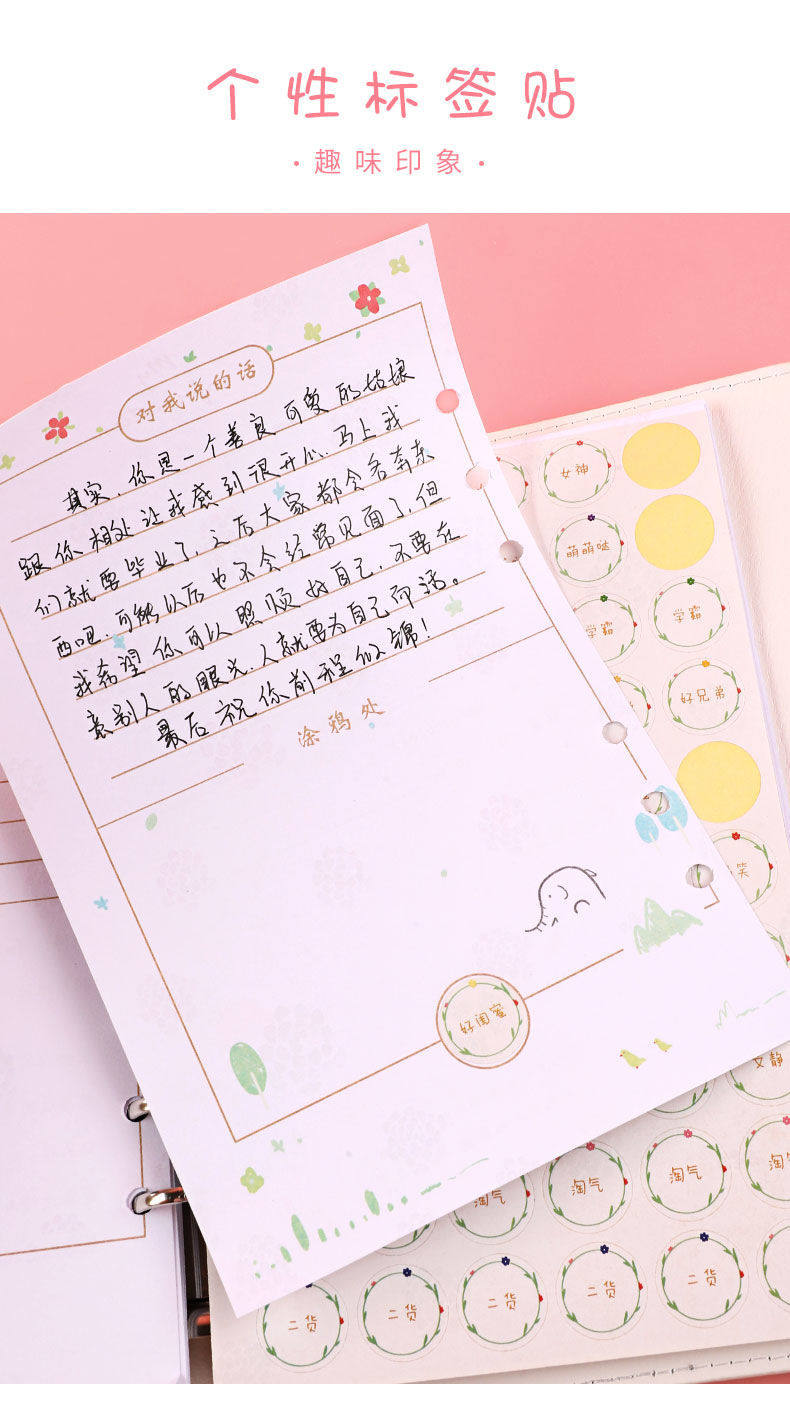 个性标签贴
·趣味印象·
对我说的话
其实，你是一个善良可爱的姑娘
跟你相处让我感到很开心.马上我
们就要毕业了，之后大家都会各奔东
西吧，可能以后也不会经常见面了，但
我希望你可以照顾好自己，不要在
意别人的眼光，人就要为自己而活。
最后祝你前程似锦！
涂鸦处
好闺蜜
女神
萌萌哒
学霸 学霸
好兄弟
笑
文静
淘气 淘气 淘气 淘
二货 二货 二货 二货 二货